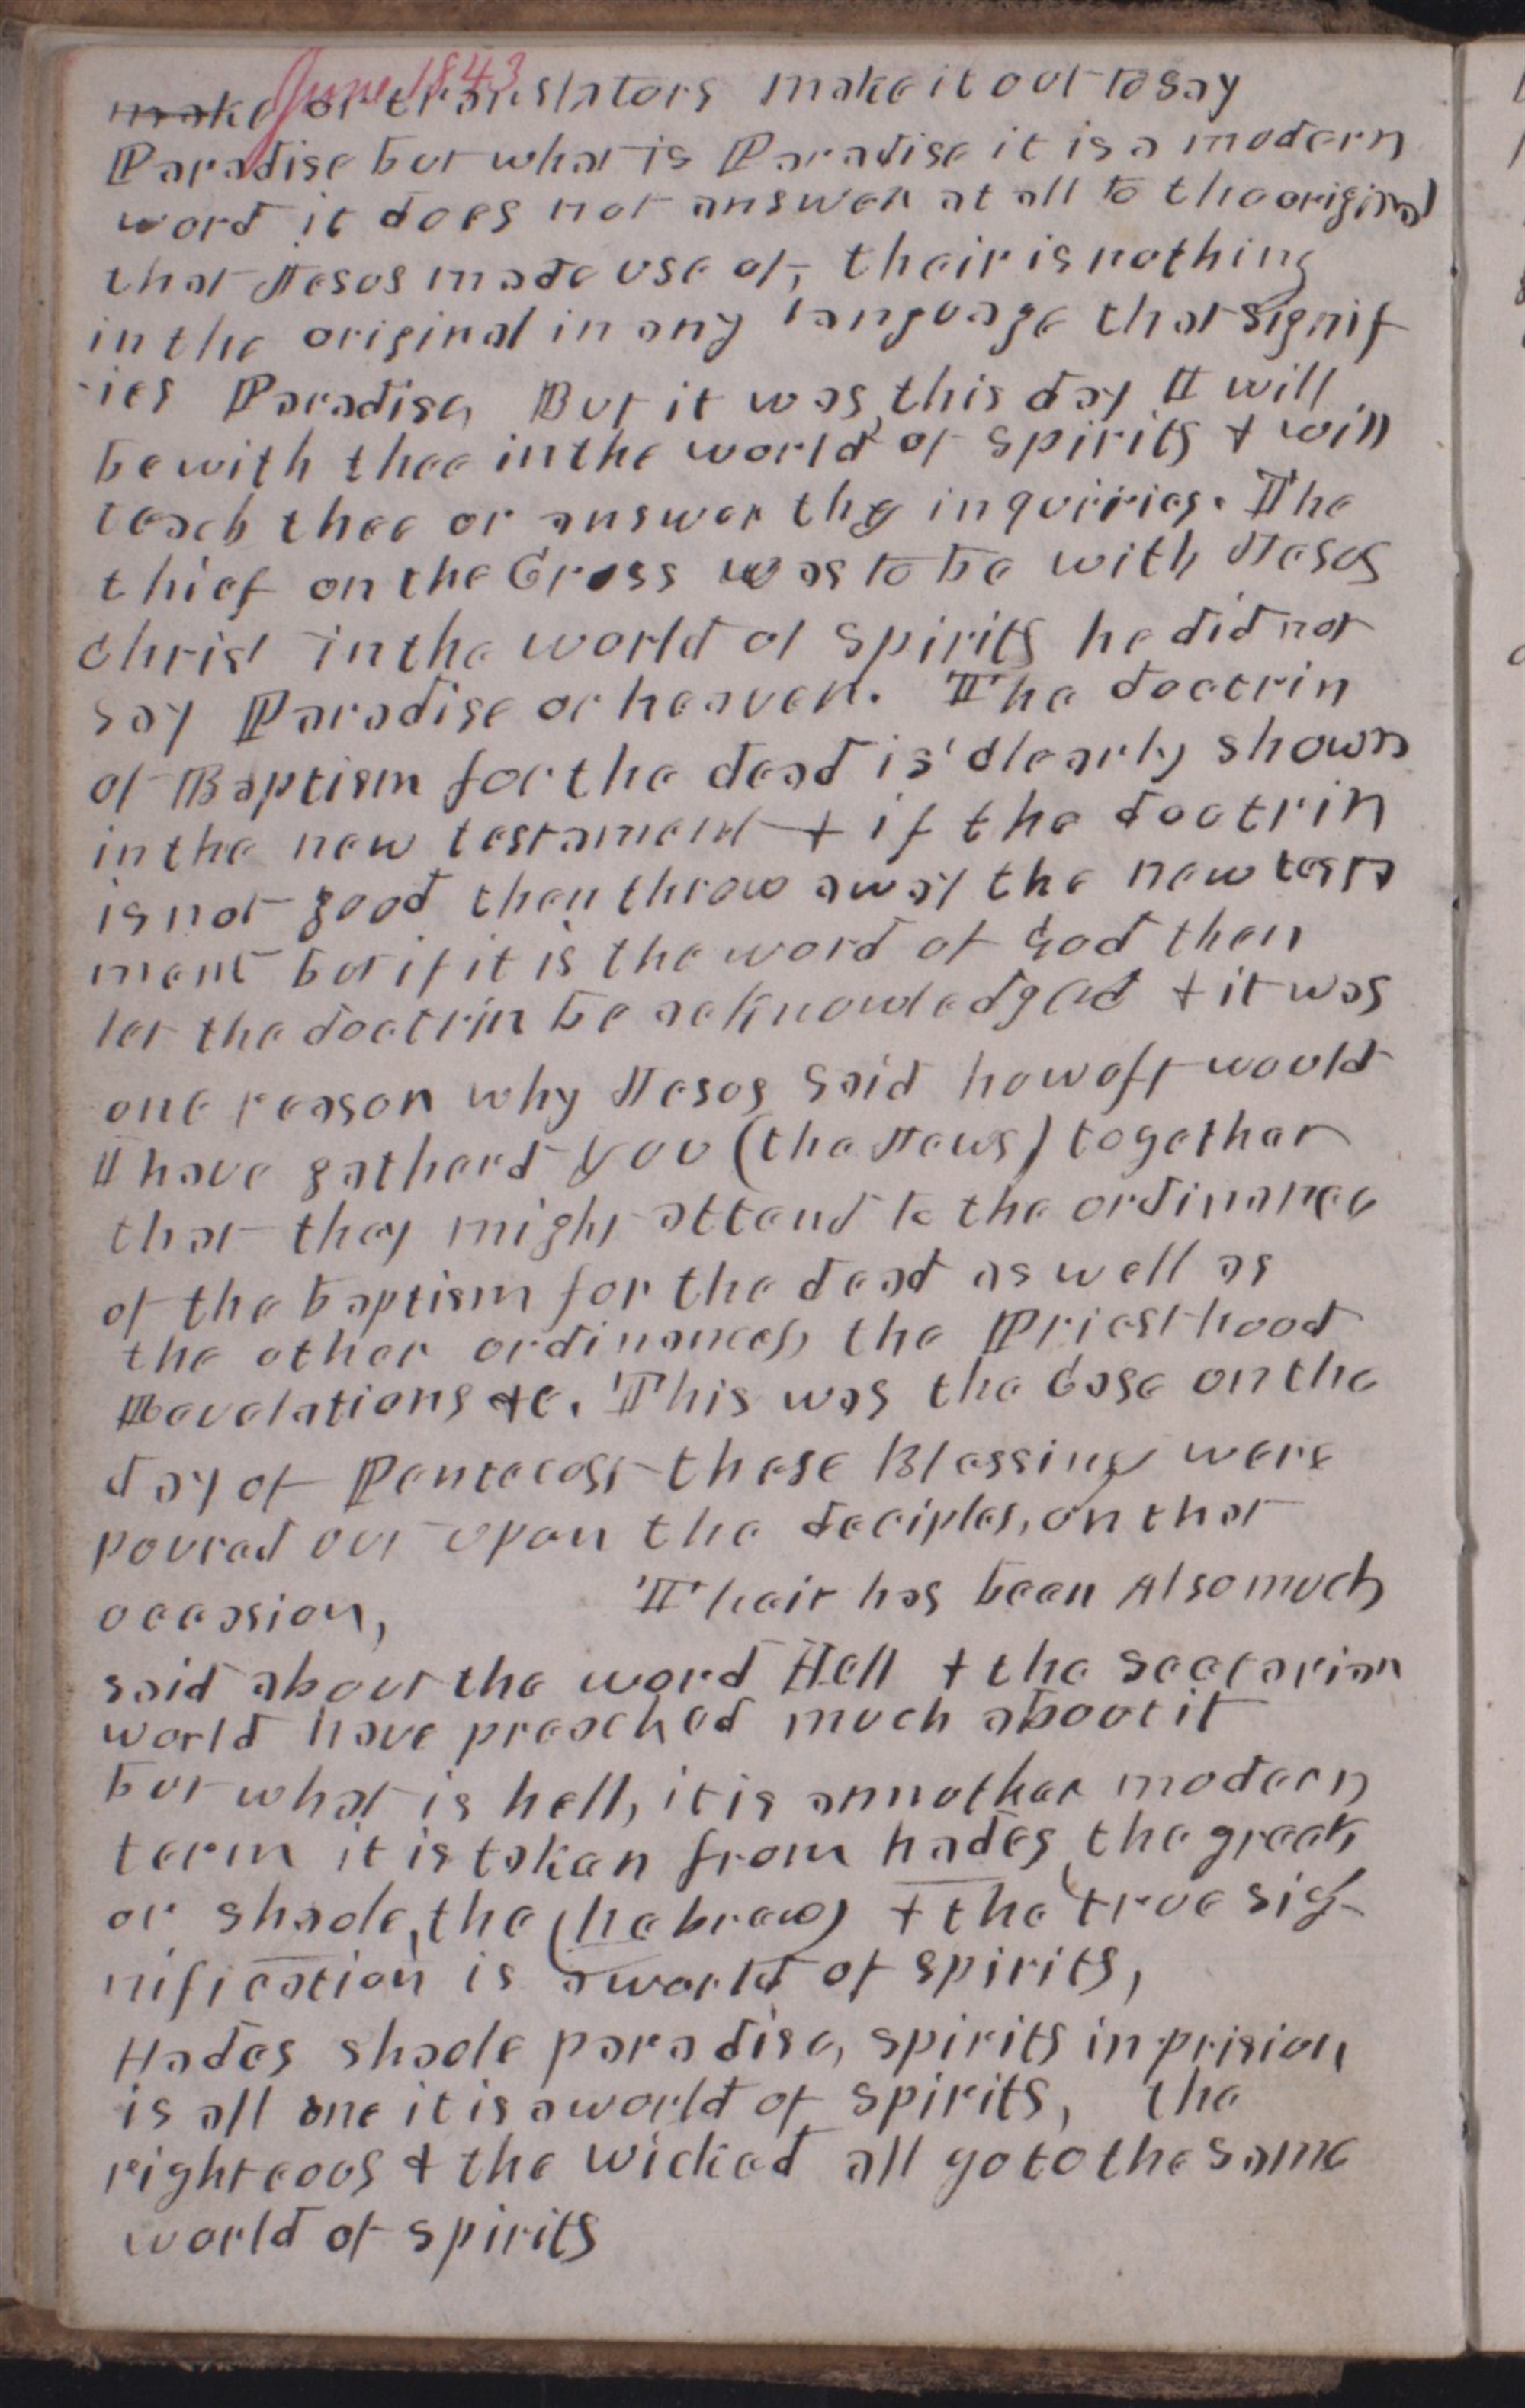 June 1843
make or translators make it out to say
Paradise but what is Paradise it is a modern
word it does not answer at all to the original
that Jesus made use of, their is nothing
in the original in any language that signif
-ies Paradise, But it was, this day I will
be with thee in the world of spirits & will
teach thee or answer thy inquiries. The
thief on the Cross was to be with Jesus
Christ in the world of spirits he did not
say Paradise or heaven. The doctrin
of Baptism for the dead is clearly shown
in the new testament & if the doctrin
is not good then throw away the new testa
ment but if it is the word of God then
let the doctrin be acknowledged & it was
one reason why Jesus said how oft would
I have gatherd you (the Jews) together
that they might attend to the ordinance
of the baptism for the dead as well as
the other ordinances, the Priesthood
Revelations &c. This was the case on the
day of Pentecost these Blessings were
poured out upon the deciples, on that
occasion, Their has been Also much
said about the word Hell & the sectarian
world have preached much about it
but what is hell, it is annother modern
term it is taken from hades, the greek
or shaole, the (hebrew) & the true sig-
nification is a world of spirits,
Hades shaole paradise, spirits in prision
is all one it is a world of spirits, the
righteous & the wicked all go to the same
world of spirits